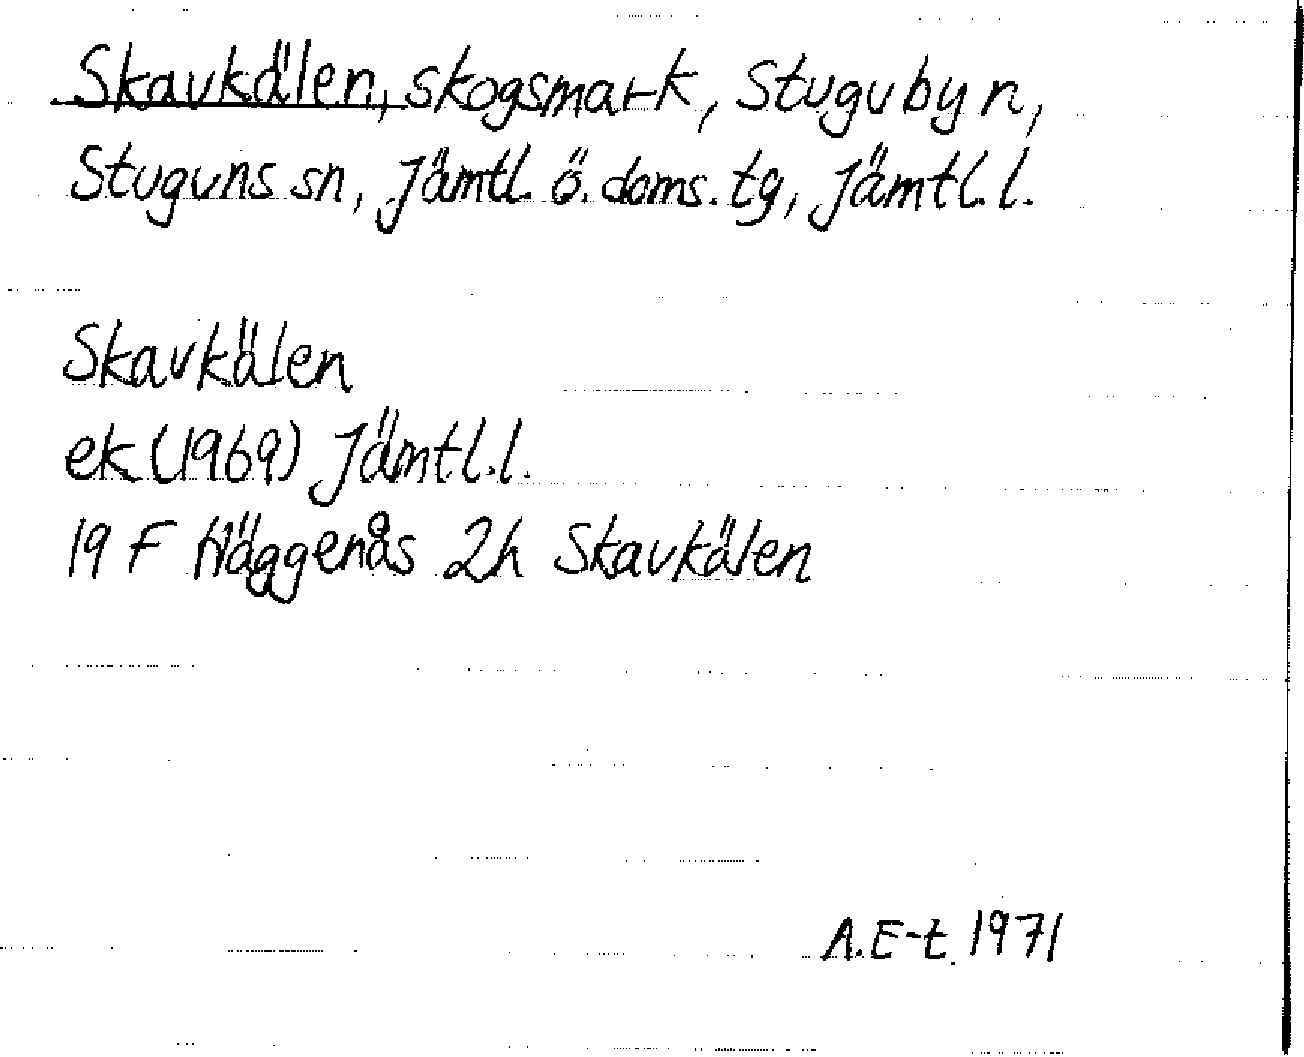 Skavkälen, skogsmark, Stugubyn,
Stuguns sn, Jämtl. ö. doms. tg, Jämtl. l.
Skavkälen
ek (1969) Jämtl. l.
19 F Häggenås 2h Skavkälen
A. E-t. 1971